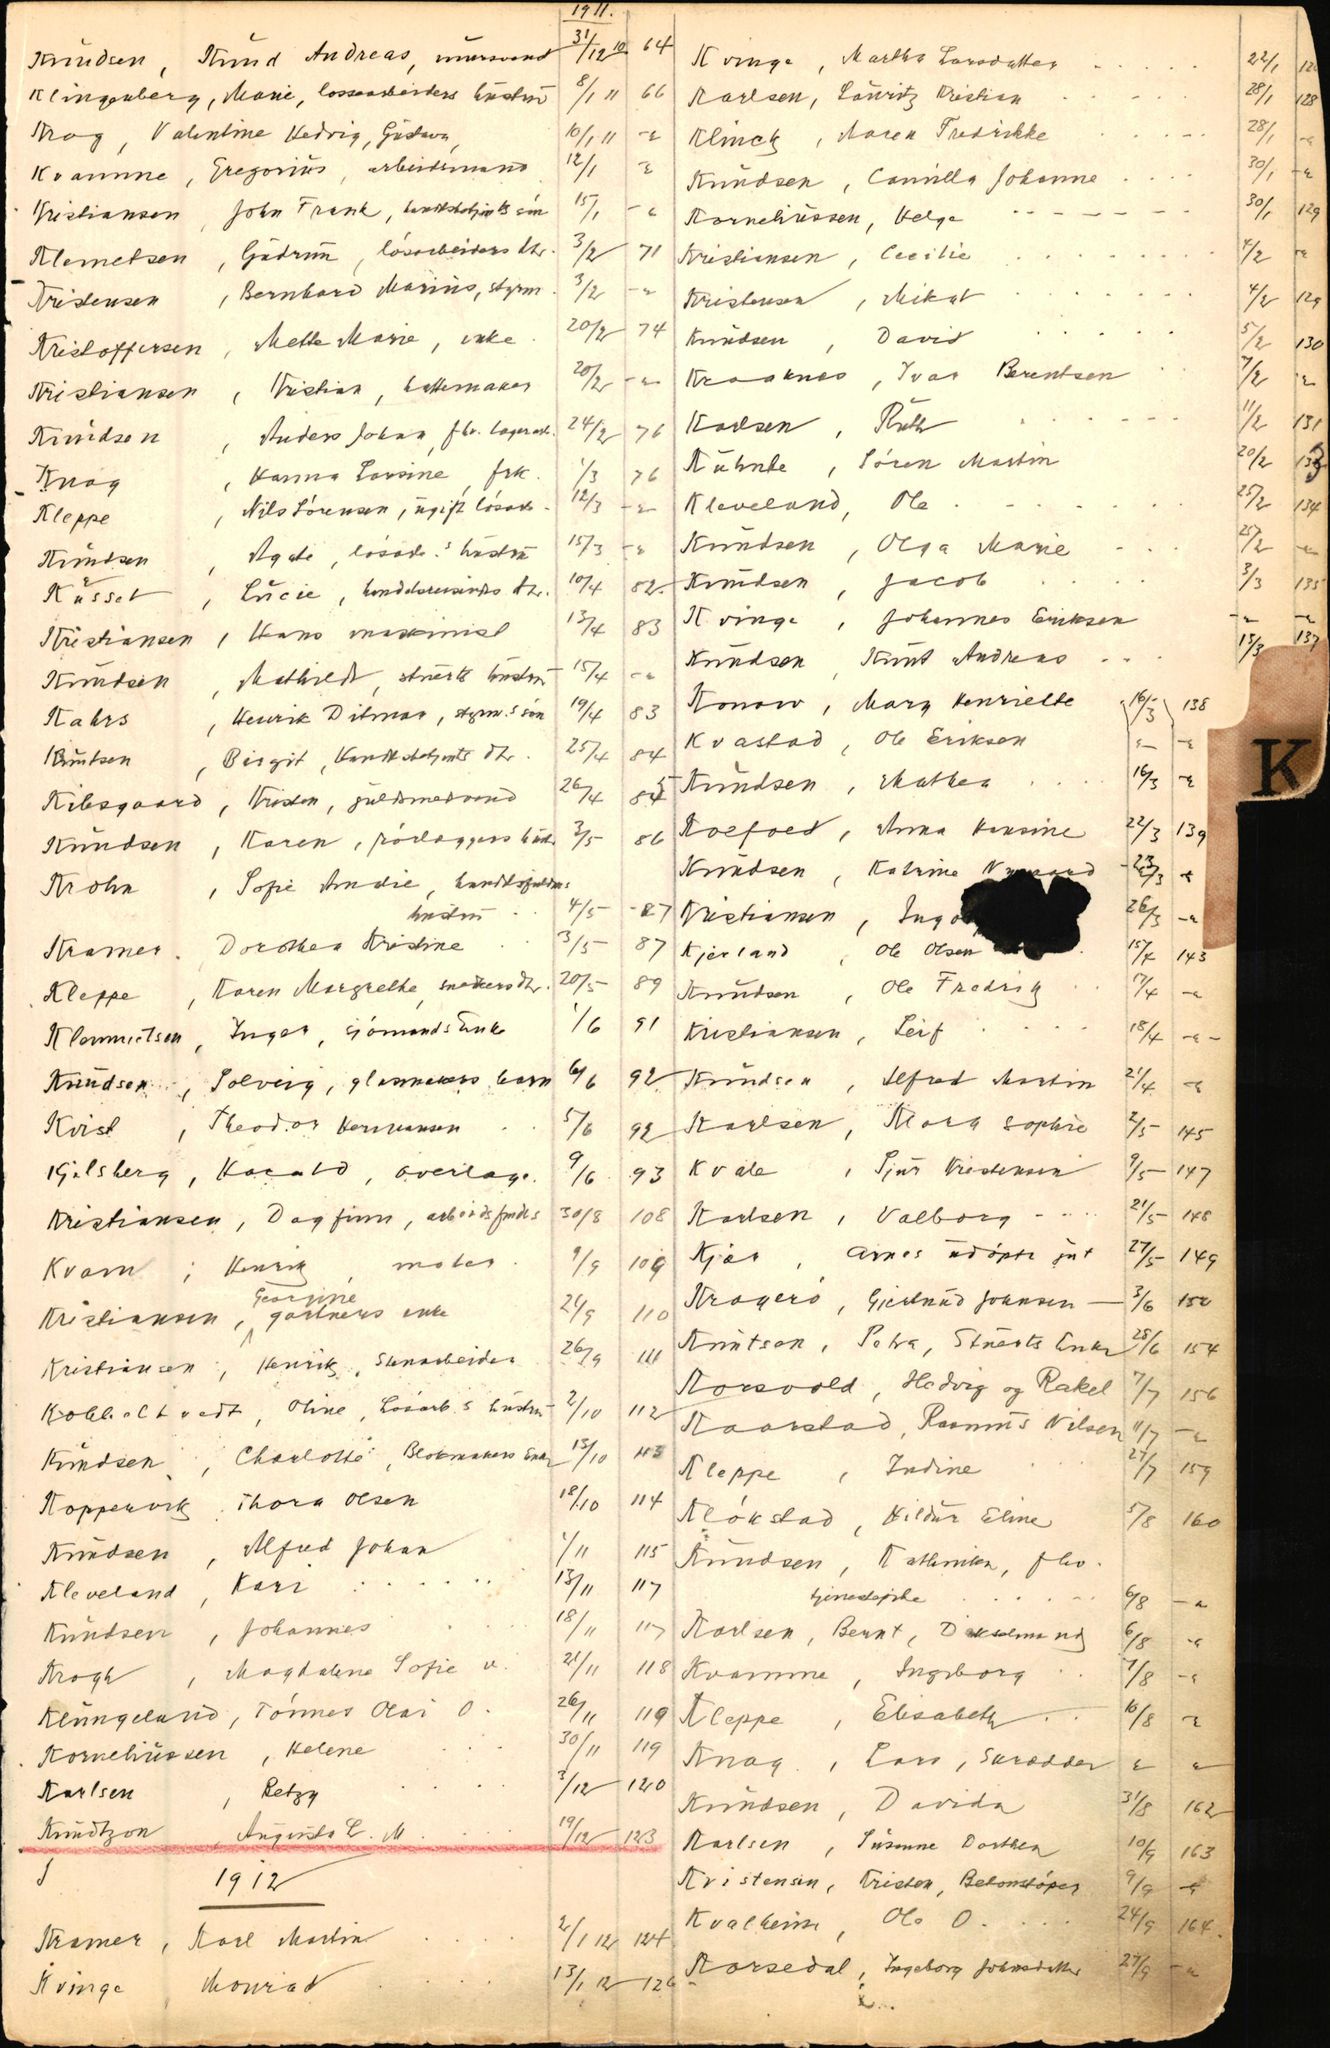 1911.
Knudsen, Knud Andreas, murersvend 31/12 10 64
Klingenberg, Marie, lossearbeiders hustru 8/1 11 66
Krag, Valentine Hedvig, Gustava, 10/1 11 -"-
Kvamme, Gregorius, arbeidsmand 12/1 "
Kristiansen John Frank, søn 15/1 -"-
Klemetsen, Gudrun, løsarbeiders dtr. 3/2 71
Kristensen, Bernhard Marius, styrm. 3/2 -"-
Kristoffersen, Mette Marie, enke. 20/2 74
Kristiansen, Kristian, hattemaker 20/2 -"-
Knudsen, Anders Johan, fhv. 24/2 76
Knag, Hanna Lovsine, frk. 1/3 76
Kleppe, Nils Sørensen, ugift løsarb. 12/3 -"-
Knudsen, Agate, løsarb.s hustru 15/3 -"-
Kusset, Lucie, handelsreisendes dtr. 10/4 82
Kristiansen, Hans maskinist 13/4 83
Knudsen, Mathilde, stuerts hustru 15/4 -"-
Kahrs, Henrik Ditman, styrm.s søn 19/4 83
Knutsen, Birgit, dtr. 25/4 84
Kibsgaard, Kristen, guldsmedsvend 26/4 85
Knudsen, Karen, rørlæggers hustr. 3/5 86
Krohn, Sofie Amalie,
hustru 4/5 -87
Kramer. Dorothea Kristine 3/5 87
Kleppe, Karen Margrethe, snekkers dtr. 20/5 89
Klemmetsen, Inger, sjømands Enke 1/6 91
Knudsen, Solveig, glasmakers barn 6/6 92
Kvist, Theodor Hermansen 5/6 92
Kjilsberg, Harald, overlage. 9/6 93
Kristiansen, Dagfinn, 30/8 108
Kvam, Henrik, maler. 9/9 109
Georgine
Kristiansen, gartners enke 21/9 110
Kristiansen, Henrik, Stenarbeider 26/9 111
Kobbeltvedt, Oline, Løsarb.s hustru 2/10 112
Knudsen, Charlotte, Blokmakers Enke 13/10 113
Koppervik Thora Olsen 18/10 114
Knudsen, Alfred Johan 1/11 115
Kleveland, Kari 13/11 117
Knudsen, Johannes 18/11 117
Krogh, Magdalene Sofie v. 21/11 118
Klungeland, Tønnes Olai O. 26/11 119
Korneliussen, Helene 30/11 119
Karlsen, Betzy 3/12 120
Knudtzon, Augusta C. M. 19/12 123
1912
Kramer, Karl Martin 2/1 12 124
Kvinge Monrad 13/1 12 126
Kvinge, Martha Larsdatter 22/1
Karlsen, Lauritz Kristian 28/1 128
Klinck, Maren Fredrikke 28/1 -"-
Knudsen, Camilla Johanne 30/1 -"-
Korneliussen, Helga 30/1 129
Kristiansen, Cecilie 4/2 "
Kristensen, Mikal 4/2 129
Knudsen, David 5/2 130
Kraaknes, Ivar Berentsen 7/2 "
Karlsen, Ruth 11/2 131
Kuhnle, Søren Martin 20/2 133
Kleveland, Ole 25/2 134
Knudsen, Olga Marie 25/2 -"-
Knudsen, Jacob 3/3 135
Kvinge, Johannes Eriksen -"- -"-
Knudsen, Knut Andreas 15/3 137
Konow, Mary Henriette 16/3 138
Kvastad, Ole Eriksen "- -"
Knudsen, Mathea 16/3 -"
Koefoed, Anna Hansine 22/3 139
Knudsen, Katrine 23/3 "
Kristiansen, 26/3 -"-
Kjerland, Ole Olsen 15/4 143
Knudsen, Ole Fredrik 17/4 -"-
Kristiansen, Leif 18/4 -"-
Knudsen, Alfred Martin 21/4 -"
Karlsen, Klara Sophie 2/5 145
Kvale, Sjur Kristensen 9/5 147
Karlsen, Valborg 21/5 148
Kjær, Arnes udøpte gut 27/5 149
Kragerø, Gjertrud Johnsen 3/6 152
Knutsen, Petra, Stuerts Enke 28/6 154
Korsvold, Hedvig og Rakel 7/7 156
Kaarstad, Rasmus Nilsen 11/7 -"-
Kleppe, Indine 27/7 159
Kløkstad, Hildur Eline 5/8 160
Knudsen, Kathinka, fhv.
tjenestepike 6/8 -"-
Karlsen, Bernt, 6/8 -"
Kvamme, Ingeborg 7/8 -"
Kleppe, Elisabeth 10/8 -"
Knag, Lars, Skrædder " "
Knudsen, Davida 31/8 162
Karlsen, Susanne Dorthea 10/9 163
Kristensen, Kristen, Betonstøper 9/9 -"
Kvalheim, Ole O. 24/9 164.
Korsedal, Ingeborg Johnsdatter 27/9 -"
K